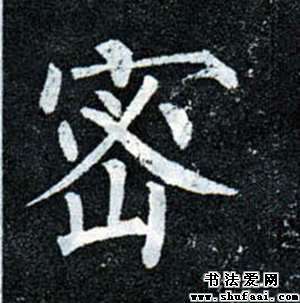 密
书法爱网
www.shufaai.com